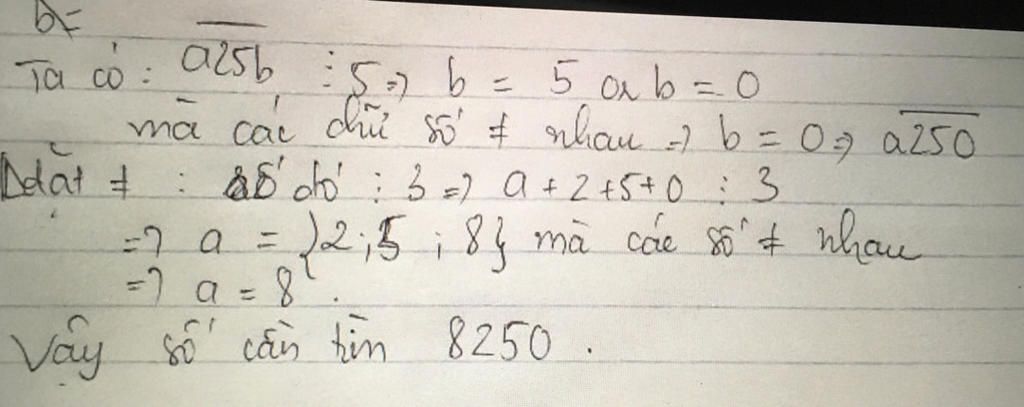 b=
Ta có : a25b ⋮ 5 => b = 5 or b = 0
mà các chữ số ≠ nhau => b = 0 => a250
Mặt ≠ : số đó ⋮ 3 => a + 2 + 5 + 0 ⋮ 3
=> a = {2 ; 5 ; 8} mà các số ≠ nhau
=> a = 8 .
Vậy số cần tìm 8250 .